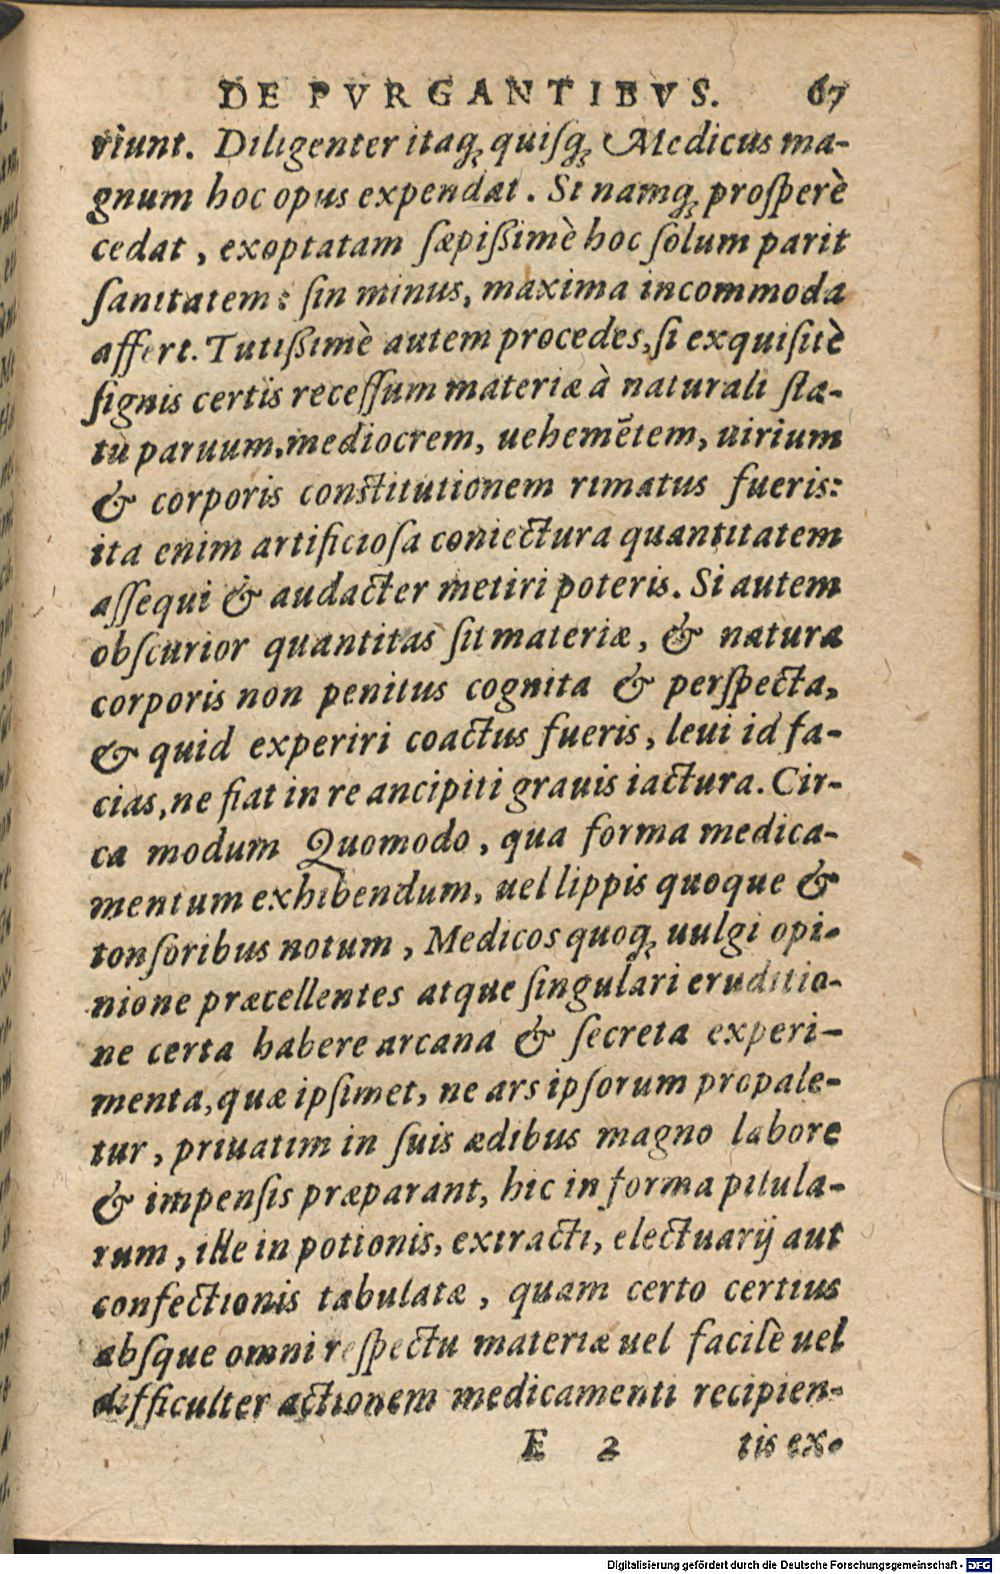 DE PVRGANTIBVS. 67
riunt. Diligenter itaq́; quiſq́; Medicus ma-
gnum hoc opus expendat. Si namq́; proſperè
cedat, exoptatam ſæpißimè hoc ſolum parit
ſanitatem: ſin minus, maxima incommoda
affert. Tutißimè autem procedes, ſi exquiſitè
ſignis certis receſſum materiæ à naturali ſta-
tu paruum, mediocrem, uehemētem, uirium
& corporis constitutionem rimatus fueris:
ita enim artificioſa coniectura quantitatem
aſſequi & audacter metiri poteris. Si autem
obſcurior quantitas ſit materiæ, & natura
corporis non penitus cognita & perſpecta,
& quid experiri coactus fueris, leui id fa-
cias, ne fiat in re ancipiti grauis iactura. Cir-
ca modum Quomodo, qua forma medica-
mentum exhibendum, uel lippis quoque &
tonſoribus notum, Medicos quoq́; uulgi opi-
nione præcellentes atque ſingulari eruditio-
ne certa habere arcana & ſecreta experi-
menta, quæ ipſimet, ne ars ipſorum propale-
tur, priuatim in ſuis ædibus magno labore
& impenſis præparant, hic in forma pilula-
rum, ille in potionis, extracti, electuarij aut
confectionis tabulatæ, quam certo certius
abſque omni reſpectu materiæ uel facilè uel
difficulter actionem medicamenti recipien-
E 2 tis ex-
Digitalisierung gefördert durch die Deutsche Forschungsgemeinschaft - DFG